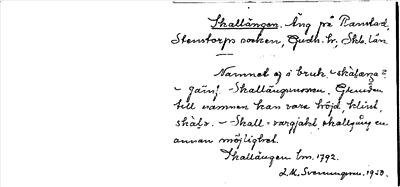 Skallängen. Äng på Ranstad,
Stenstorps socken, Gudh. hr, Skb. län
Namnet ej i bruk.
- Skallängsmossen. Grunden
till namnen kan vara höjd, klint,
- Skall - vargjakt, skallgång en
annan möjlighet.
Skallängen lm. 1792.
L.M. Svenungsson. 1950.